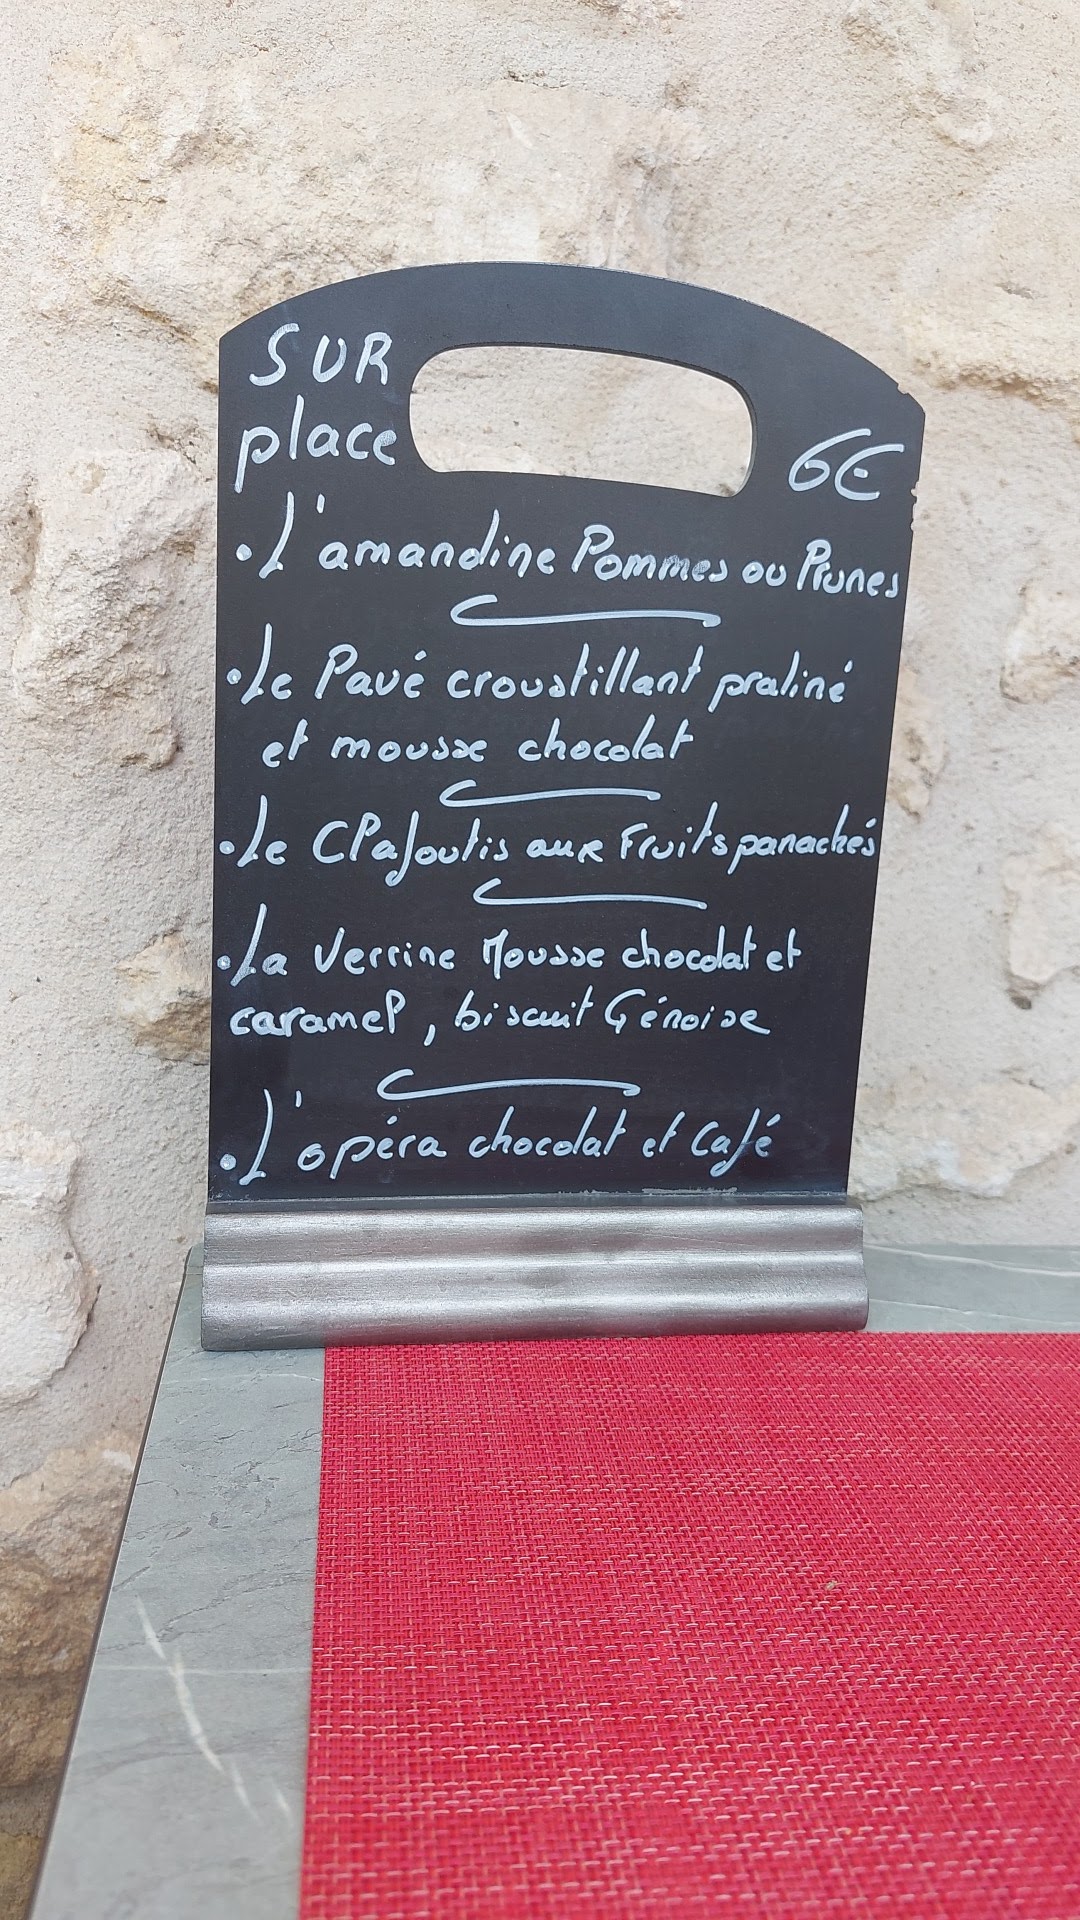 SUR
place
6€
• L'amandine Pommes ou Prunes
• Le Pavé croustillant praliné
et mousse chocolat
• Le Clafoutis aux Fruits panachés
• La Verrine Mousse chocolat et
caramel, biscuit Génoise
• L'opéra chocolat et Café